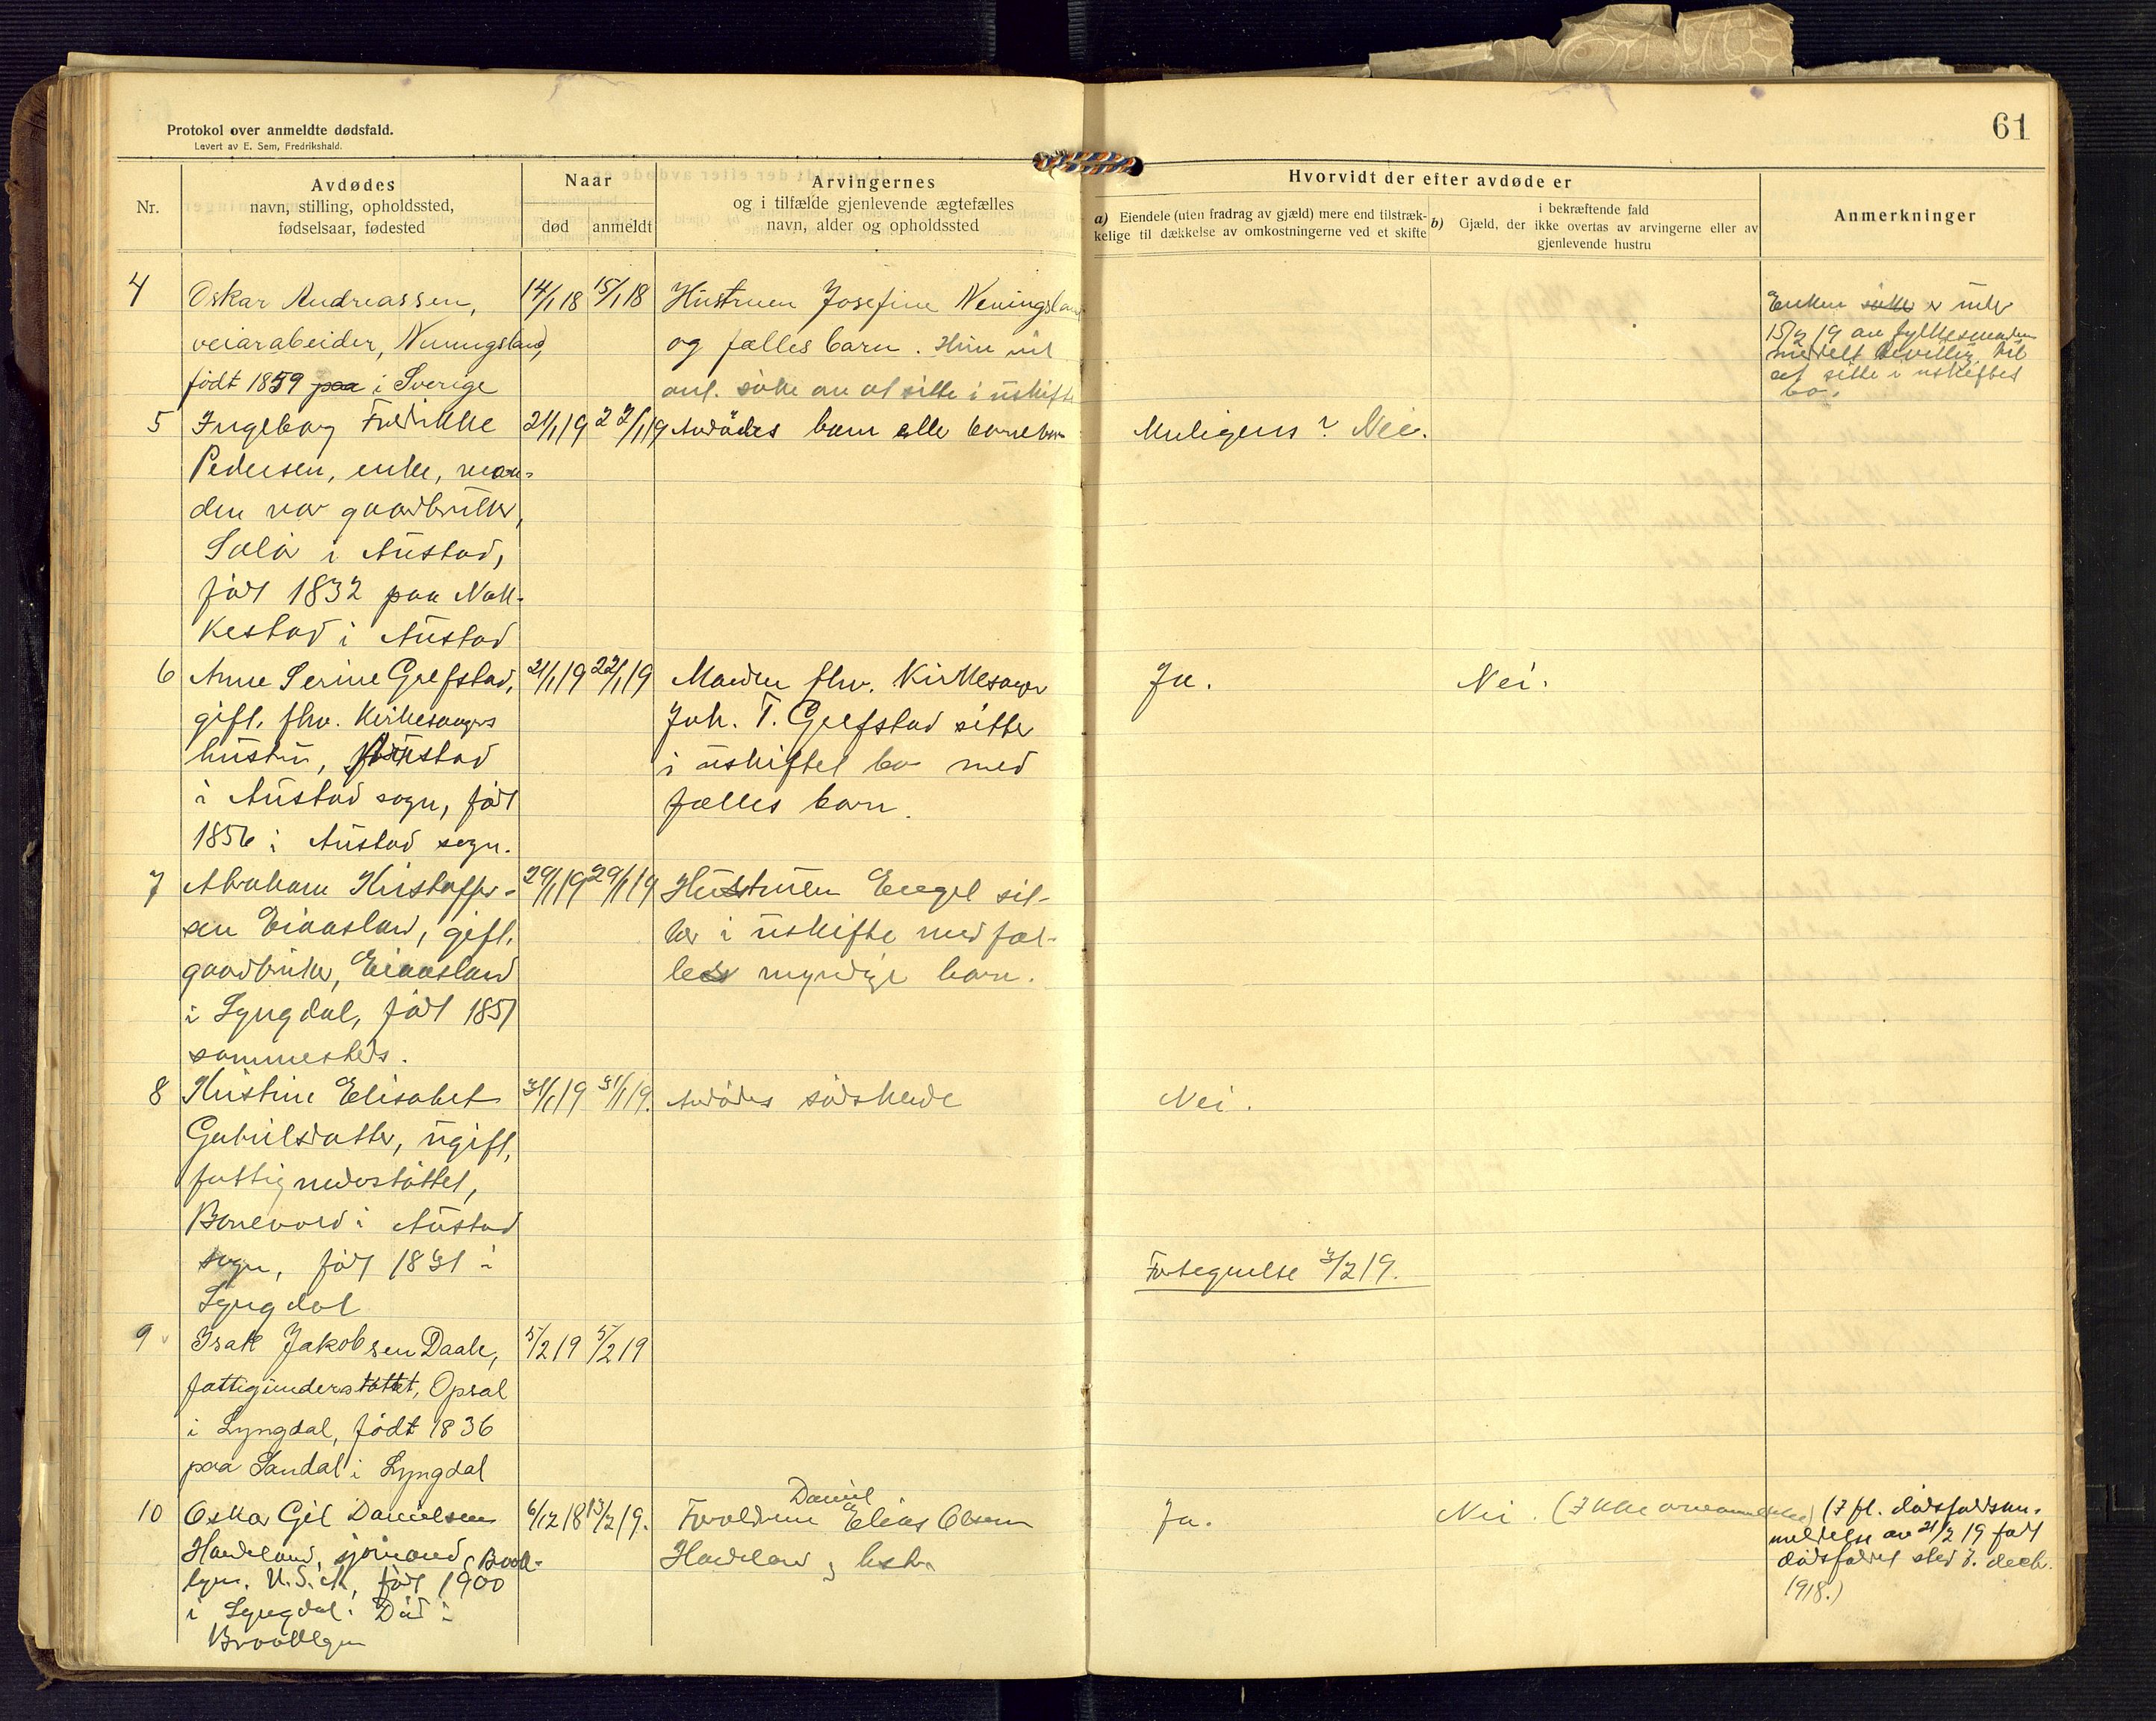 61
Protokol over anmeldte dødsfald.
Levert av E. Sem, Fredrikshald.
Nr.
Avdødes
navn, stilling, opholdssted,
fødselsaar, fødested
Naar
død
anmeldt
Arvingernes
og i tilfælde gjenlevende ægtefælles
navn, alder og opholdssted
Hvorvidt der efter avdøde er
a) Eiendele (uten fradrag av gjæld) mere end tilstræk-
kelige til dækkelse av omkostningerne ved et skifte
b) Gjæld, der i bekræftende fald
ikke overtas av arvingerne eller av
gjenlevende hustru
Anmerkninger
4
Oskar Andreassen,
veiarabeider,
født 1859 paa i Sverige
14/1 18
15/1 18
Hustruen Josefine
og fælles barn. Hun vil
ant. søke om at sitte i uskifte
Enken søke er under
15/2 19 av fylkesmanden
meddelt bevilling til
at sitte i uskiftet
bo.
5
Ingeborg Fredrikke
Pedersen, enke, man-
den var gaardbruker,
i Austad,
født 1832 paa Nak-
kestad i Austad
21/1 19
22/1 19
Avdødes barn eller barnebarn
Muligens? Nei.
6
Anne Serine Grefstad,
gift, fhv. Kirkesangers
hustru,
i Austad sogn, født
1856 i Austad sogn.
21/1 19
22/1 19
Manden fhv. Kirkesanger
Joh. T. Grefstad sitter
i uskiftet bo med
fælles barn.
Ja.
Nei.
7
Abraham Kristoffer-
sen Eiaasland, gift,
gaardbruker, Eiaasland
i Lyngdal, født 1851
sammesteds.
29/1 19
29/1 19
Hustruen Engel sit-
ter i uskifte med fæl-
les myndige barn.
8
Kristine Elisabet
Gabrielsdatter, ugift,
fattigunderstøttet,
Bonevold i Austad
sogn, født 1831 i
Lyngdal
31/1 19
31/1 19.
Avdødes sødskende
Nei.
Fortegnelse 3/2 19.
9
Isak Jakobsen Daale,
fattigunderstøttet, Opsal
i Lyngdal, født 1836
paa Sandal i Lyngdal
5/2 19
5/2 19
10
Oskar Gil Danielsen
Haaveland, sjømand, Brook-
lyn, U.S.A, født 1900
i Lyngdal. Død i
Brooklyn
6/12 18
13/2 19.
Forældrene Daniel Elias Olsen
Haaveland og hustru
Ja.
Nei. (Ikke
(Ifl. dødsfaldsan-
meldelse av 21/2 19 fandt
dødsfaldet sted 7. decb.
1918.)